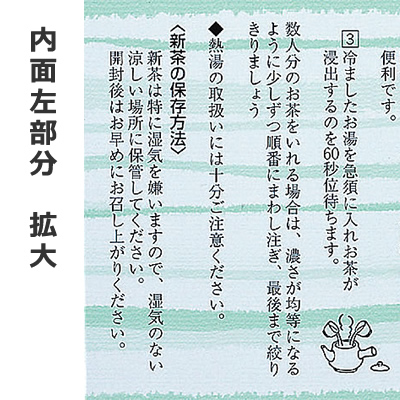 内面左部分 拡大
便利です。
3 冷ましたお湯を急須に入れお茶が
浸出するのを60秒位待ちます。
数人分のお茶をいれる場合は、濃さが均等になる
ように少しずつ順番にまわし注ぎ、最後まで絞り
きりましょう
◆熱湯の取扱いには十分ご注意ください。
〈新茶の保存方法〉
新茶は特に湿気を嫌いますので、湿気のない
涼しい場所に保管してください。
開封後はお早めにお召し上がりください。